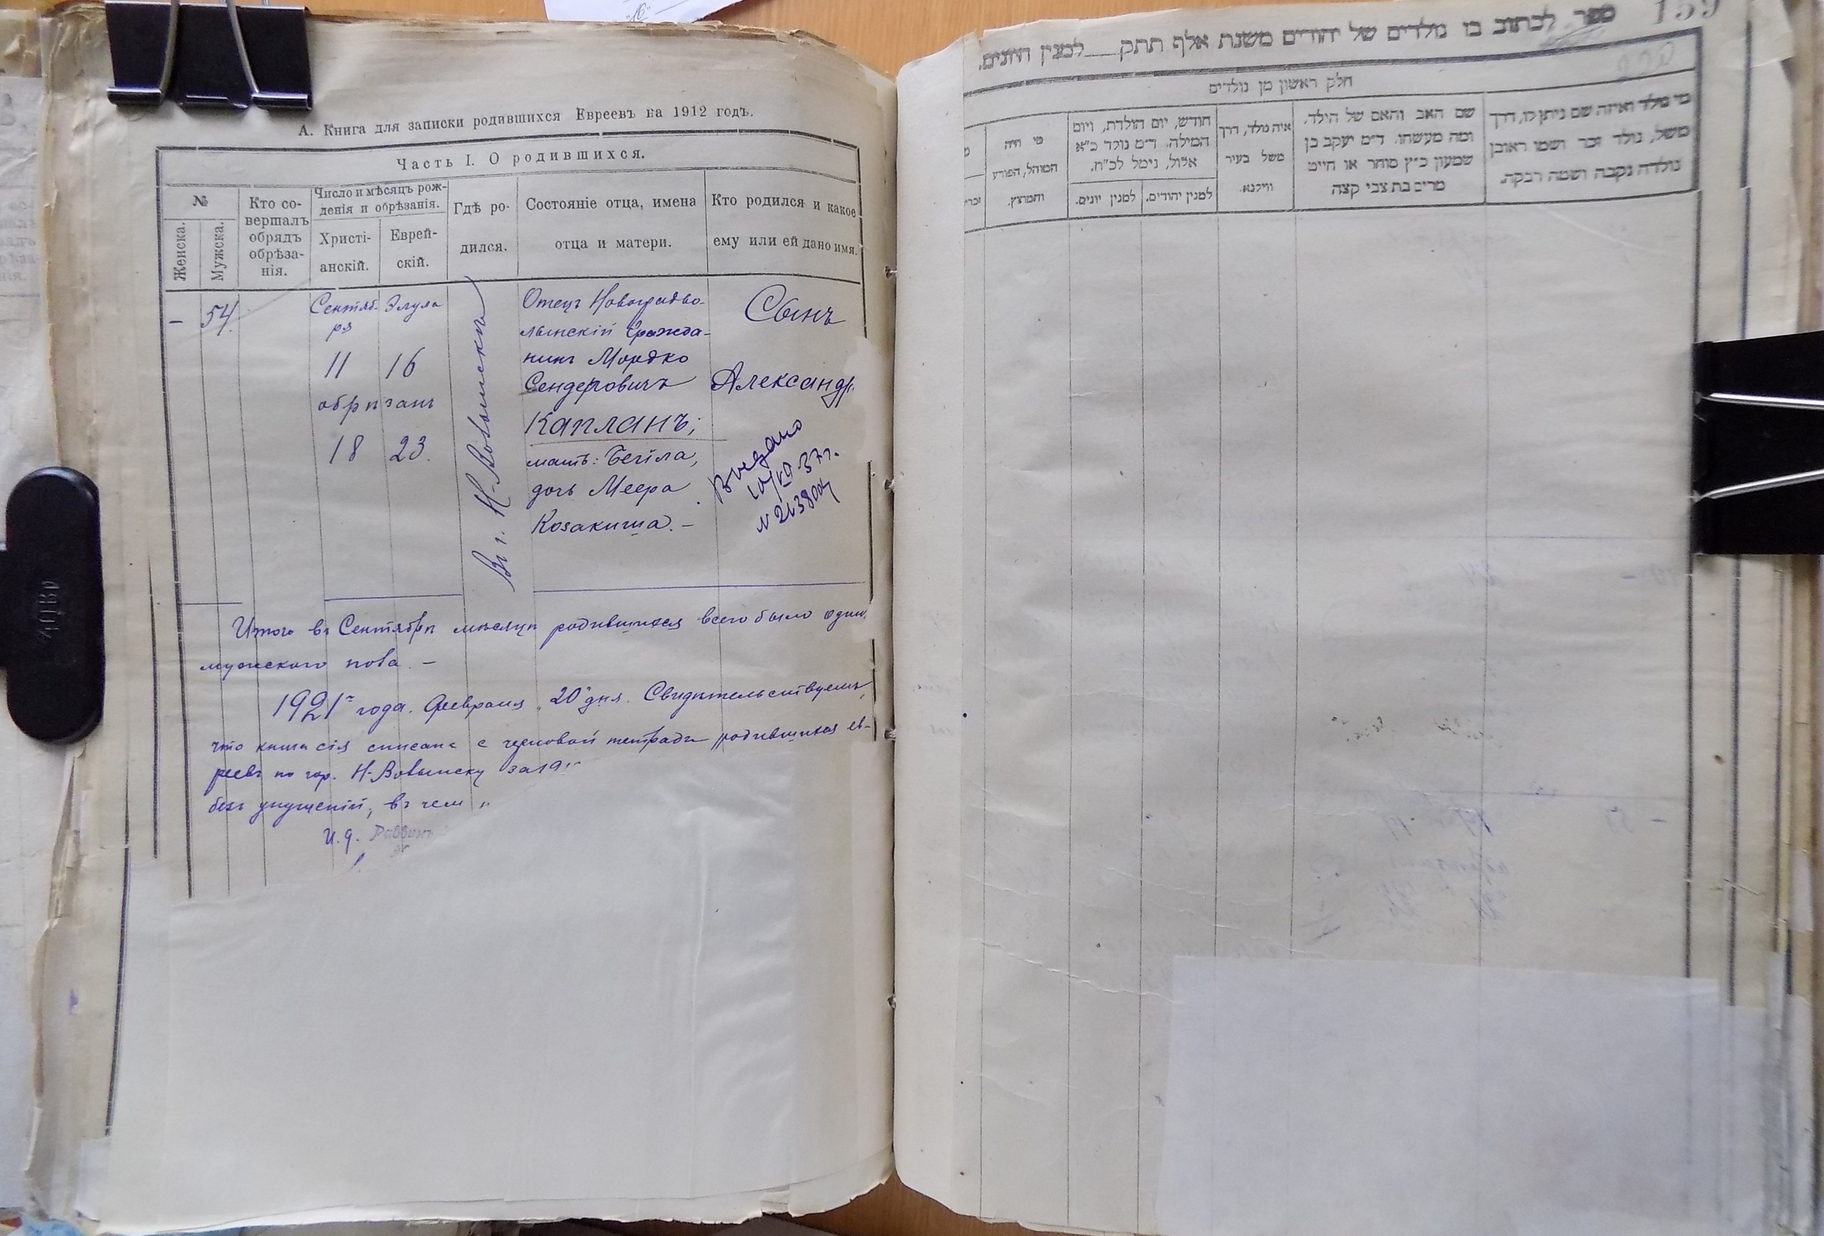 А. Книга для записки родившихся Евреевъ на 1912 годъ.
Часть I. О родившихся.
№
Женска.
Мужска.
Кто со-
вершалъ
обрядъ
обрѣза-
нія.
Число и мѣсяцъ рож-
денія и обрѣзанія.
Христі-
анскій.
Еврей-
скій.
Гдѣ ро-
дился.
Состояніе отца, имена
отца и матери.
Кто родился и какое
ему или ей дано имя.
– 54
Сентяб-
ря
11
Элула
16
обрѣзанъ
18 23.
Въ г. Н-Волынскѣ
Отецъ Новоградво-
лынскій Гражда-
нинъ Мордко
Сендеровичъ
Капланъ;
мать: Бейла,
дочь Меера
–
Сынъ
Александр.
Выдано
10/VII 37 г.
Итого въ Сентябрѣ мѣсяцѣ родившихся всего было один
мужского пола. –
1921 года. Февраля „20" дня. Свидѣтельствуемъ,
что книга сія списана с черновой тетради родившихся ев-
реевъ по гор. Н-Волынску за 19
безъ упущеній, въ чем
И. д. Раввинъ
159
ספר לכתוב בו נולדים של יהודים משנת אלף תתק לממנין היונים.
חלק ראשון מן נולדים
מי נולד ואיזה שם ניתן לו, דרך
משל, נולד זכר ושמו ראובן
נולדה נקבה ושמה רבקה.
שם האב והאם של הילד,
ומה מעשהו. ד״מ יעקב בן
שמעון כ״ץ סוחר או חייט
מרים בת צבי קצה
איה נולד, דרך
משל בעיר
ווילנא.
חודש, יום הולדת, ויום
המילה. ד״מ נולד כ״א
אלול, נימל לכ״ח.
למנין יהודים.
למנין יונים.
מי היה
המוהל, הפורע
והמוצץ.